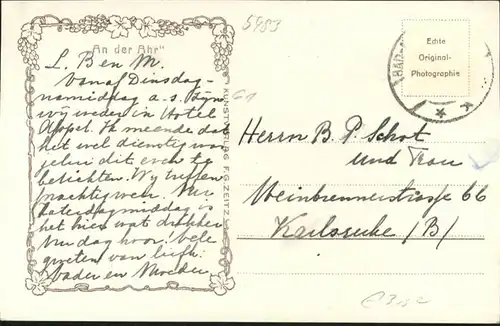 5983
„An der Ahr"
L. B en M.
Vanaf Dinsdag-
namiddag a.s. zijn
wij weder in Hotel
Appel. Ik meende dat
het wel dienstig was
jelui dit even te
berichten. Wij treffen
prachtig weer.
Zaterdagmiddag is
het hier wat drukker
Nu dag hoor! Vele
groeten van liefh.
Vader en Moeder
KUNSTVERLAG F.G. ZEITZ
Echte
Original-
Photographie
Herrn B. P. Schot
und Frau
Weinbrennerstrasse 66
Karlsruhe /(B)/